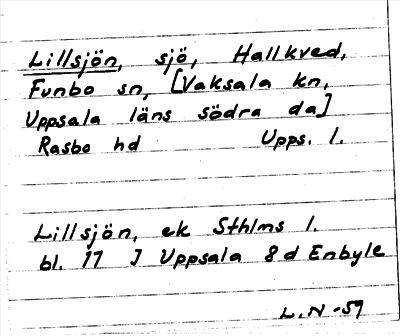 Lillsjön, sjö, Hallkved,
Funbo sn, [Vaksala kn,
Uppsala läns södra da]
Rasbo hd Upps. l.
Lillsjön, ek Sthlms l.
bl. 17 J Uppsala 8 d Enbyle
L.N -59